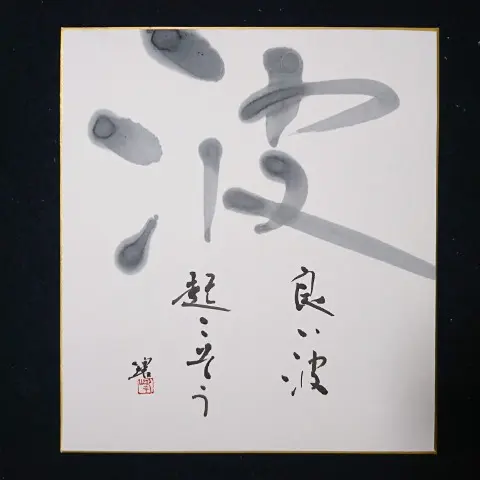 波
良い波
起こそう